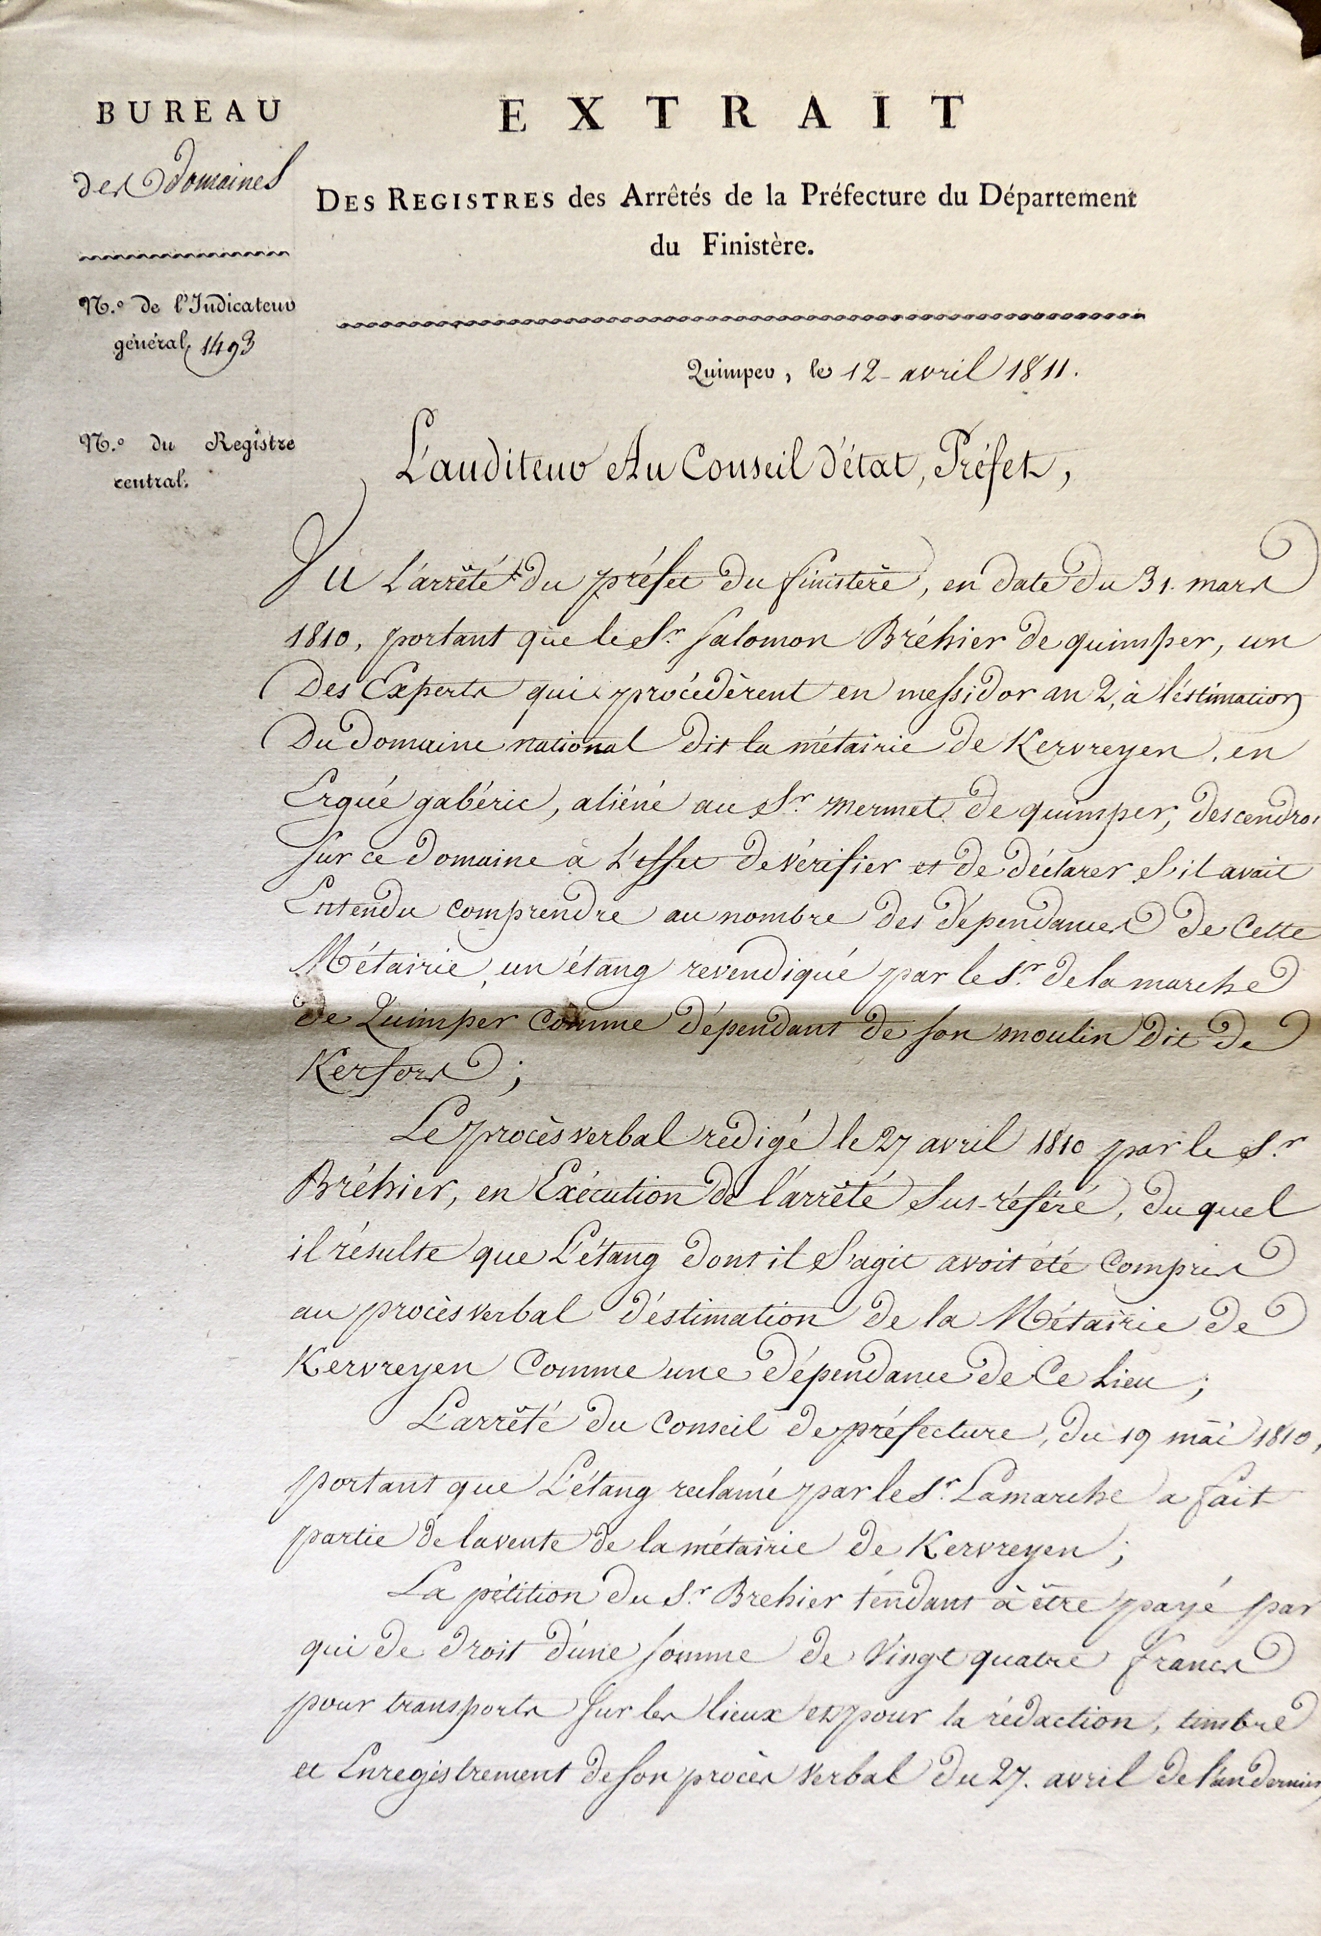 BUREAU
des domaines
N.º de l'Indicateur
général, 1493
N.º du Registre
central.
EXTRAIT
DES REGISTRES des Arrêtés de la Préfecture du Département
du Finistère.
Quimper, le 12 avril 1811.
L'auditeur Au Conseil d'état, Préfet,
Vu L'arrêté du préfet du finistère, en date du 31. mars
1810, portant que le Sr. Salomon Bréhier de quimper, un
Des Experts qui procédèrent en messidor an 2, à l'éstimation
Du domaine national dit la métairie de Kervreyen, en
Ergué gabéric, aliéné au Sr. Mermet de quimper, descendroi
sur ce domaine à L'effet de vérifier et de déclarer s'il avait
Entendu comprendre au nombre des dépendances de Cette
Métairie, un étang revendiqué par le Sr. de la marche
de Quimper comme dépendant de son moulin dit de
Kerfors;
Le procès verbal rédigé le 27 avril 1810 par le Sr
Bréhier, en Exécution de l'arrêté sus-référé, du quel
il résulte que L'étang dont il s'agit avoit été compris
au procès verbal d'éstimation de la Métairie de
Kervreyen Comme une dépendance de Ce Lieu;
L'arrêté du Conseil de préfecture, du 19 mai 1810,
portant que L'étang reclamé par le Sr. Lamarche a fait
partie de la vente de la métairie de Kervreyen;
La pétition du Sr. Brehier tendant à être payé par
qui de droit d'une somme de Vingt quatre francs
pour transports sur les lieux et pour la rédaction, timbre
et Enregistrement de son procès verbal du 27. avril de l'an dernier,